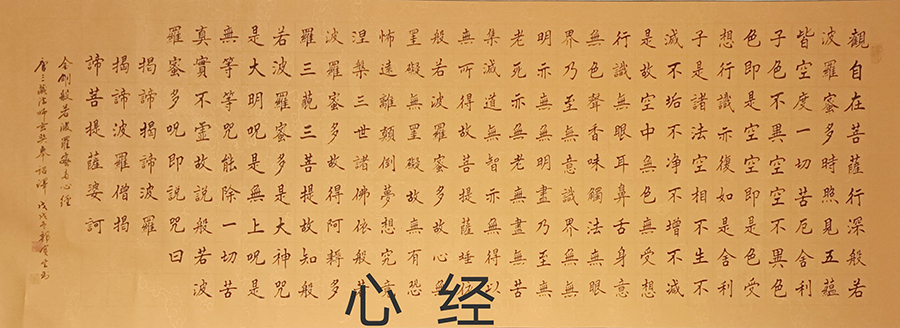 觀自在菩薩行深般若
波羅蜜多時照見五蘊
皆空度一切苦厄舍利
子色不異空空不異色
色即是空空即是色受
想行識亦復如是舍利
子是諸法空相不生不
滅不垢不净不增不減
是故空中無色無受想
行識無眼耳鼻舌身意
無色聲香味觸法無眼
界乃至無意識界無無
明亦無無明盡乃至無
老死亦無老死盡無苦
集滅道無智亦無得以
無所得故菩提薩埵依
般若波羅蜜多故心無
罣礙無罣礙故無有恐
怖遠離顛倒夢想究竟
涅槃三世諸佛依般若
波羅蜜多故得阿耨多
羅三藐三菩提故知般
若波羅蜜多是大神咒
是大明咒是無上咒是
無等等咒能除一切苦
真實不虛故說般若波
羅蜜多咒即說咒曰
揭諦揭諦波羅
揭諦波羅僧揭
諦菩提薩婆訶
金剛般若波羅蜜多心經
唐三藏法師玄奘奉詔譯 戊戌年
心经